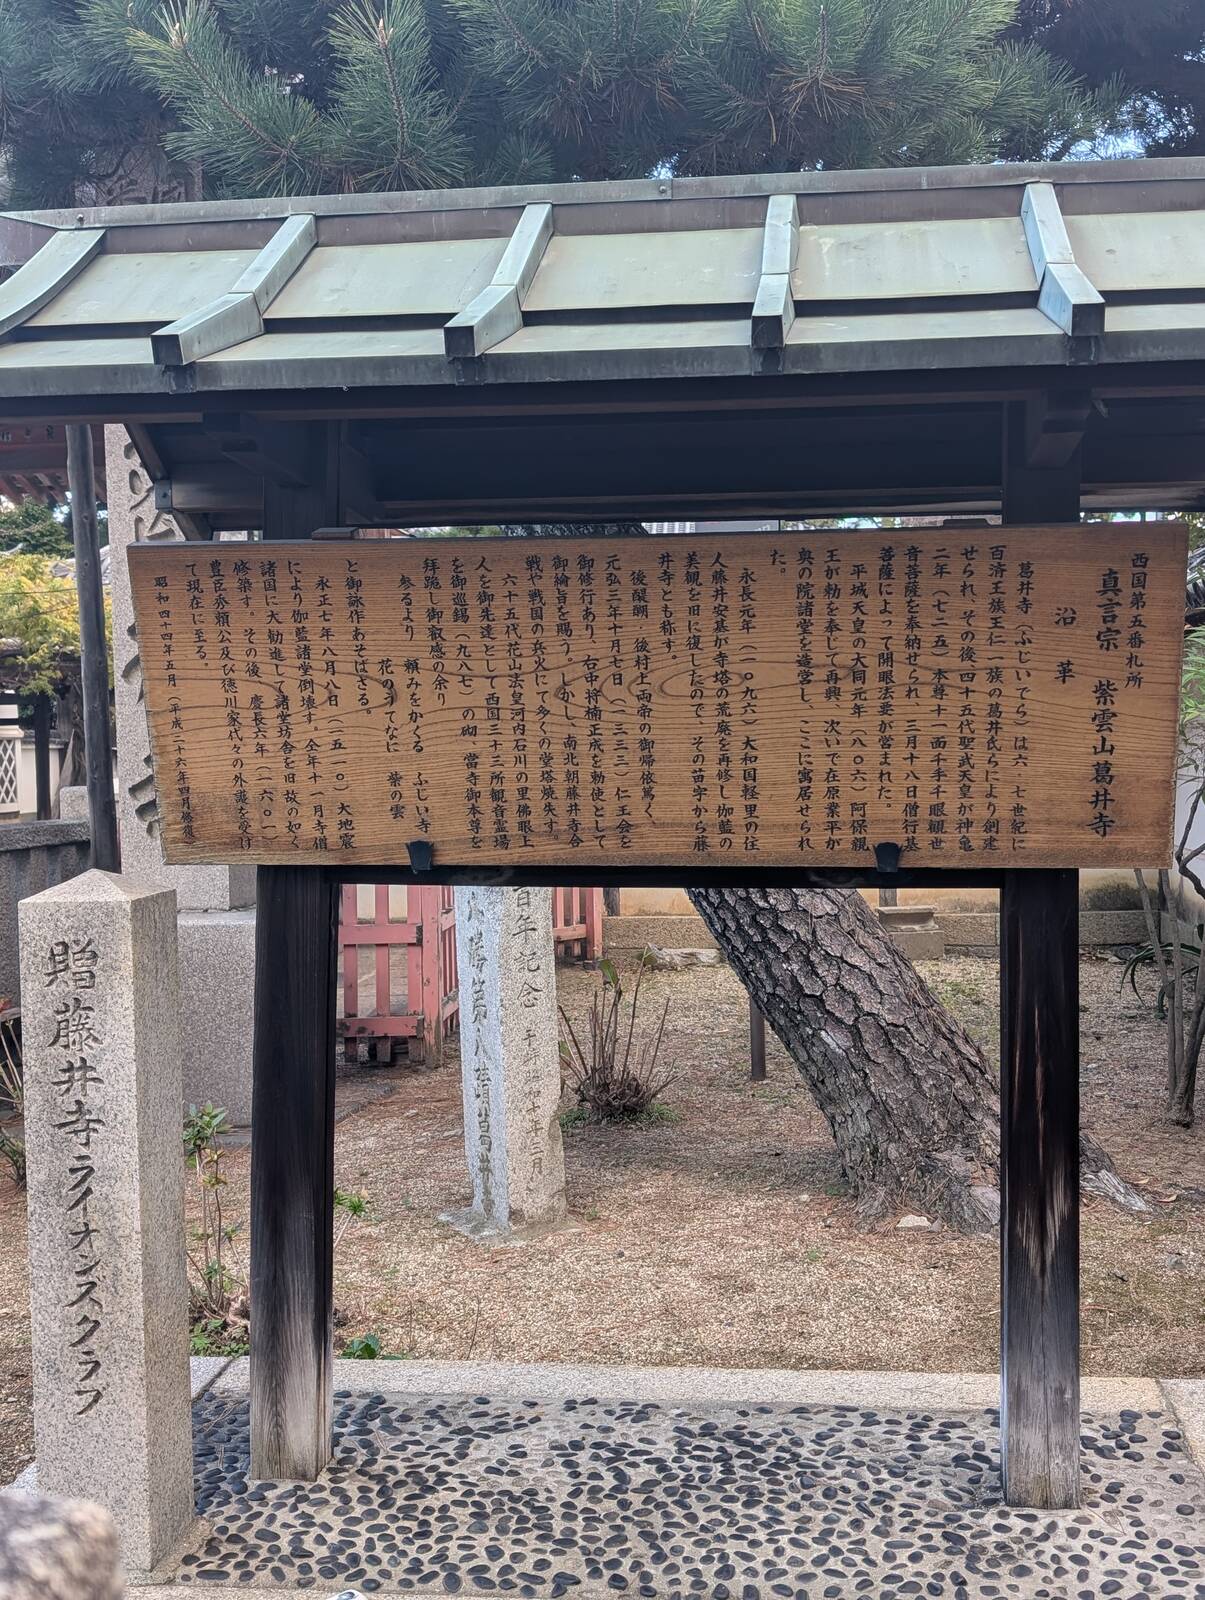 西国第五番札所
真言宗 紫雲山葛井寺
沿革
葛井寺(ふじいでら)は六・七世紀に
百済王族王仁一族の葛井氏らにより創建
せられ、その後四十五代聖武天皇が神亀
二年(七二五)本尊十一面千手千眼観世
音菩薩を奉納せられ、三月十八日僧行基
菩薩によって開眼法要が営まれた。
平城天皇の大同元年(八〇六)阿保親
王が勅を奉じて再興、次いで在原業平が
奥の院諸堂を造営し、ここに寓居せられ
た。
永長元年(一〇九六)大和国軽里の住
人藤井安基が寺塔の荒廃を再修し伽藍の
美観を旧に復したので、その苗字から藤
井寺とも称す。
後醍醐、後村上両帝の御帰依篤く、
元弘三年十月七日(一三三三)仁王会を
御修行あり、右中将楠正成を勅使として
御綸旨を賜う。しかし、南北朝藤井寺合
戦や戦国の兵火にて多くの堂塔焼失す。
六十五代花山法皇河内石川の里佛眼上
人を御先達として西国三十三所観音霊場
を御巡錫(九八七)の砌 當寺御本尊を
拜跪し御叡感の余り
参るより 頼みをかくる ふじい寺
花のうてなに 紫の雲
と御詠作あそばさる。
永正七年八月八日(一五一〇)大地震
により伽藍諸堂倒壊す。仝年十一月寺僧
諸国に大勧進して諸堂坊舎を旧故の如く
修築す。その後、慶長六年(一六〇一)
豊臣秀頼公及び徳川家代々の外護を受け
て現在に至る。
昭和四十四年五月(平成二十六年四月修復)
贈藤井寺ライオンズクラブ
百年記念